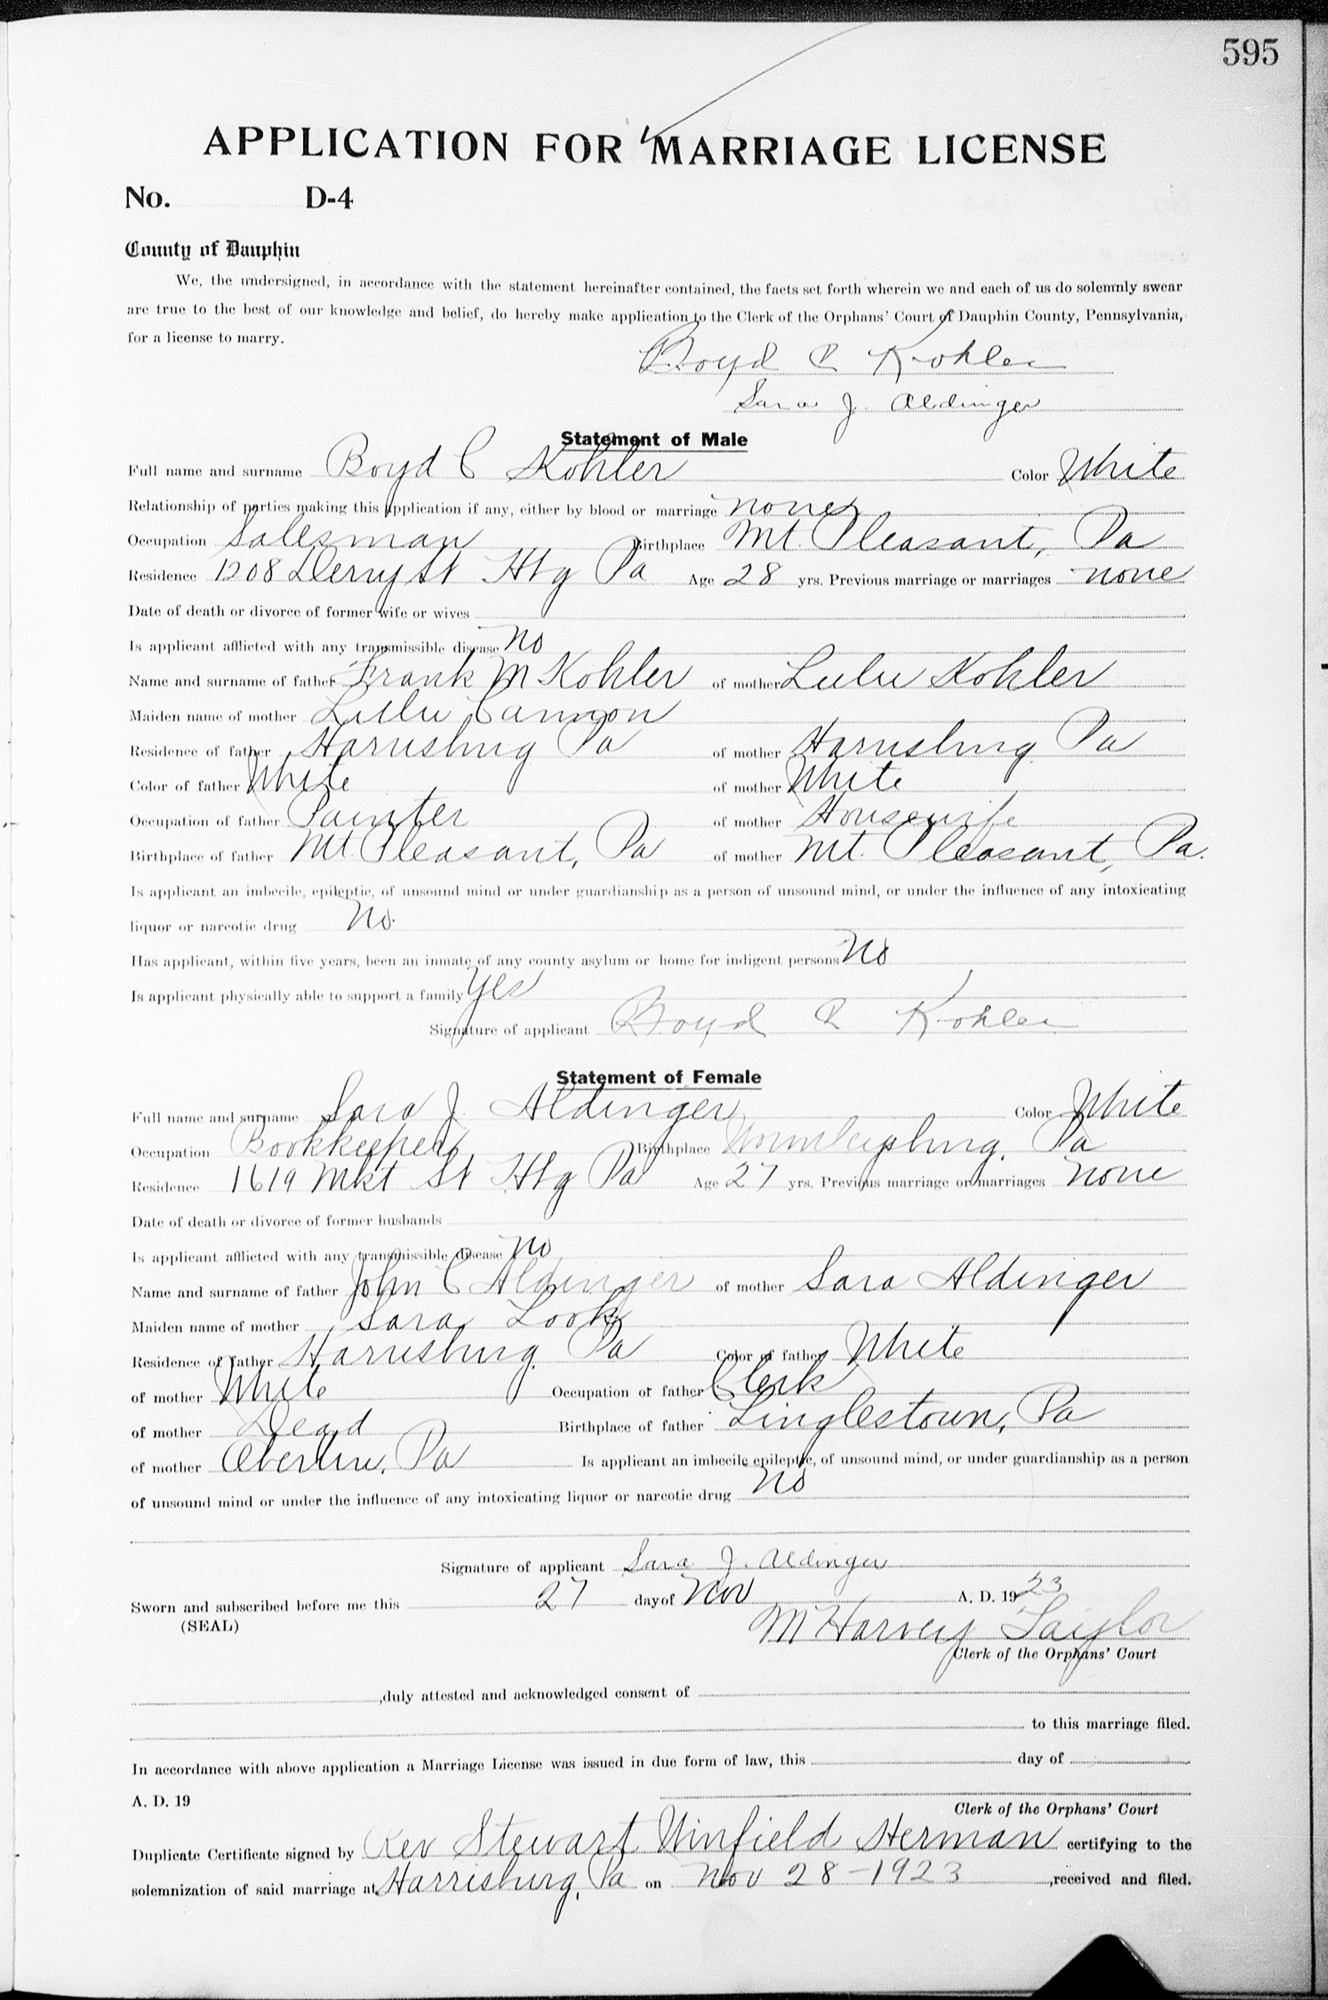 595
APPLICATION FOR MARRIAGE LICENSE
No. D-4
County of Dauphin
We, the undersigned, in accordance with the statement hereinafter contained, the facts set forth wherein we and each of us do solemnly swear
are true to the best of our knowledge and belief, do hereby make application to the Clerk of the Orphans' Court of Dauphin County, Pennsylvania,
for a license to marry.
Boyd C Kohler
Sara J. Aldinger
Statement of Male
Full name and surname Boyd C Kohler Color White
Relationship of parties making this application if any, either by blood or marriage none
Occupation Salesman Birthplace Mt. Pleasant, Pa
Residence 1208 Derry St Hbg Pa Age 28 yrs. Previous marriage or marriages none
Date of death or divorce of former wife or wives
Is applicant afflicted with any transmissible disease No
Name and surname of father Frank M Kohler of mother Lulu Kohler
Maiden name of mother Lulu Cannon
Residence of father Harrisburg Pa of mother Harrisburg Pa
Color of father White of mother White
Occupation of father Painter of mother Housewife
Birthplace of father Mt. Pleasant, Pa of mother Mt. Pleasant, Pa.
Is applicant an imbecile, epileptic, of unsound mind or under guardianship as a person of unsound mind, or under the influence of any intoxicating
liquor or narcotic drug No.
Has applicant, within five years, been an inmate of any county asylum or home for indigent persons No
Is applicant physically able to support a family Yes
Signature of applicant Boyd C Kohler
Statement of Female
Full name and surname Sara J. Aldinger Color White
Occupation Bookkeeper Birthplace Pa
Residence 1619 Mkt St Hbg Pa Age 27 yrs. Previous marriage or marriages none
Date of death or divorce of former husbands
Is applicant afflicted with any transmissible disease No
Name and surname of father John C Aldinger of mother Sara Aldinger
Maiden name of mother Sara Look
Residence of father Harrisburg, Pa Color of father White
of mother White Occupation of father Clerk
of mother Dead Birthplace of father Linglestown, Pa
of mother Oberlin, Pa Is applicant an imbecile epileptic, of unsound mind, or under guardianship as a person
of unsound mind or under the influence of any intoxicating liquor or narcotic drug No
Signature of applicant Sara J. Aldinger
Sworn and subscribed before me this 27 day of Nov A. D. 1923
(SEAL) M Harvey Taylor
Clerk of the Orphans' Court
,duly attested and acknowledged consent of
to this marriage filed.
In accordance with above application a Marriage License was issued in due form of law, this day of
A. D. 19
Clerk of the Orphans' Court
Duplicate Certificate signed by Rev Stewart Winfield Herman certifying to the
solemnization of said marriage at Harrisburg, Pa on Nov 28-1923 ,received and filed.